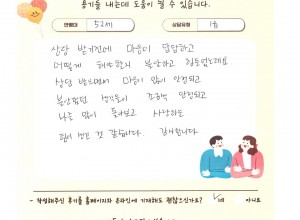 용기를 내는데 도움이 될 수 있습니다.
연령대 52세 상담유형 1회
상담 받기전에 마음이 답답하고
어떻게 해야할지 불안하고 힘들었는데요
상담 받으면서 마음이 많이 안정되고
불안했던 생각들이 조금씩 안정되고
나를 많이 돌아보고 사랑하는
힘이 생긴 것 같습니다. 감사합니다.
- 작성해주신 후기를 홈페이지와 온라인에 기재해도 괜찮으신가요? 네 아니요